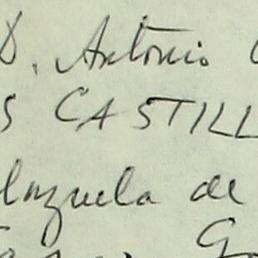 D. Antonio
S CASTILL
lazuela de
G